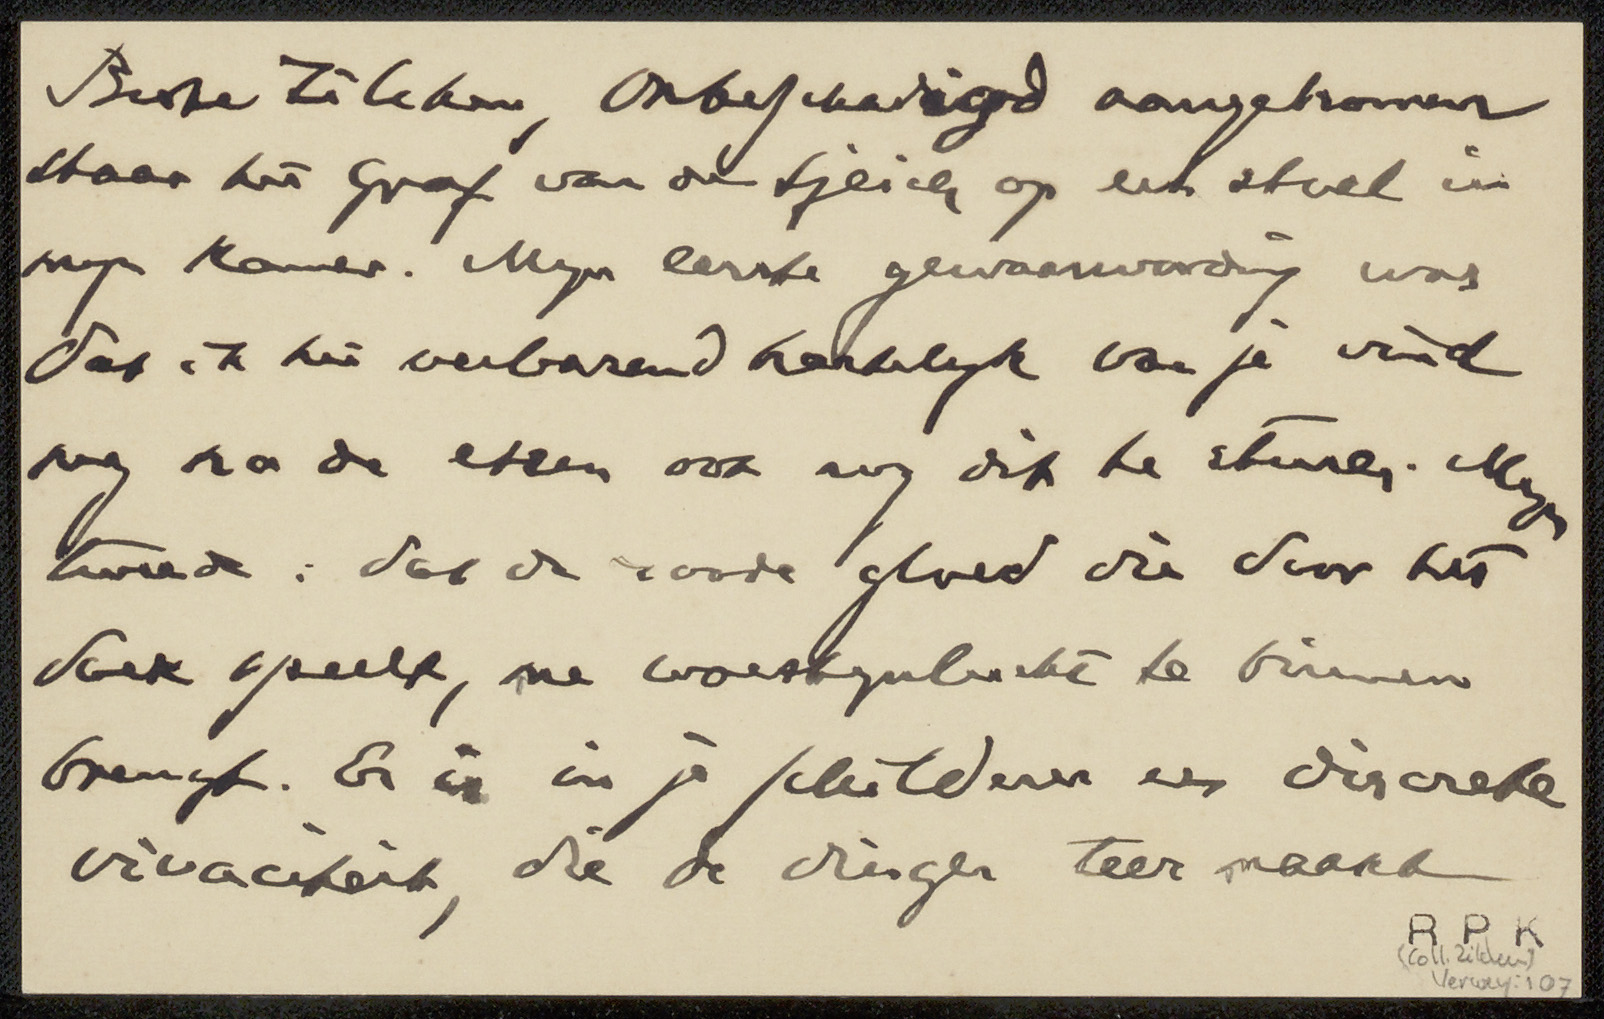 Beste Zilcken, Onbeschadigd aangekomen
staat het Graf van den Sjeich op een stoel in
mijn kamer. Mijn eerste gewaarwording was
dat ik het verbazend hartelijk van je vind
mij na de etsen ook nog dit te sturen. Mijn
tweede: dat de roode gloed die door het
doek speelt, me woestijnlucht te binnen
brengt. Er is in je schilderen een discrete
vivaciteit, die de dingen teer maakt
R P K
(Coll. Zilcken)
Verwey: 107